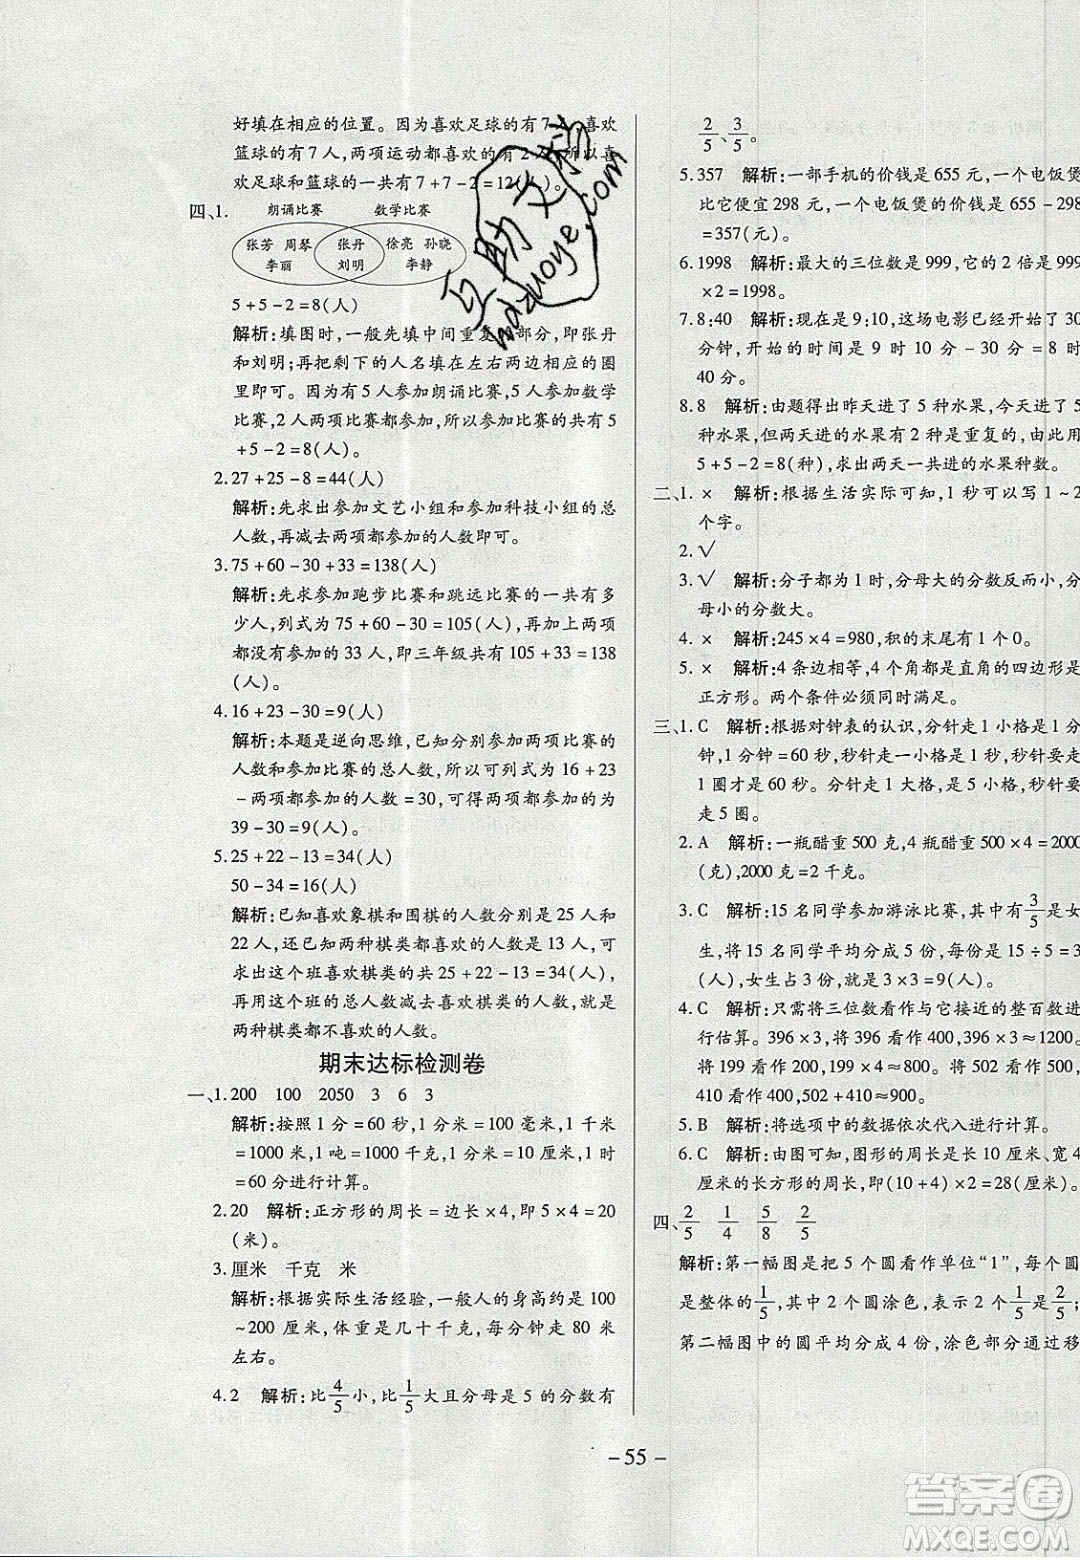 好填在相应的位置。因为喜欢足球的有7人,喜欢
篮球的有7人,两项运动都喜欢的有2人,所以喜
欢足球和篮球的一共有7+7-2=12(人)。
四、1. 朗诵比赛 数学比赛
张芳 周琴 张丹 徐亮 孙晓
李丽 刘明 李静
5+5-2=8(人)
解析:填图时,一般先填中间重复的部分,即张丹
和刘明;再把剩下的人名填在左右两边相应的圈
里即可。因为有5人参加朗诵比赛,5人参加数学
比赛,2人两项比赛都参加,所以参加比赛的共有5
+5-2=8(人)。
2.27+25-8=44(人)
解析:先求出参加文艺小组和参加科技小组的总
人数,再减去两项都参加的人数即可。
3.75+60-30+33=138(人)
解析:先求参加跑步比赛和跳远比赛的一共有多
少人,列式为75+60-30=105(人),再加上两项
都没有参加的33人,即三年级共有105+33=138
(人)。
4.16+23-30=9(人)
解析:本题是逆向思维,已知分别参加两项比赛的
人数和参加比赛的总人数,所以可列式为16+23
-两项都参加的人数=30,可得两项都参加的为
39-30=9(人)。
5.25+22-13=34(人)
50-34=16(人)
解析:已知喜欢象棋和围棋的人数分别是25人和
22人,还已知两种棋类都喜欢的人数是13人,可
求出这个班喜欢棋类的共25+22-13=34(人),
再用这个班的总人数减去喜欢棋类的人数,就是
两种棋类都不喜欢的人数。
期末达标检测卷
一、1.200 100 2050 3 6 3
解析:按照1分=60秒,1分米=100毫米,1千米
=1000米,1吨=1000千克,1厘米=10毫米,1时
=60分进行计算。
2.20 解析:正方形的周长=边长×4,即5×4=20
(米)。
3.厘米 千克 米
解析:根据实际生活经验,一般人的身高约是100
~200厘米,体重是几十千克,每分钟走80米
左右。
4.2 解析:比4/5小,比1/5大且分母是5的分数有
2/5、3/5。
5.357 解析:一部手机的价钱是655元,一个电饭煲
比它便宜298元,一个电饭煲的价钱是655-298
=357(元)。
6.1998 解析:最大的三位数是999,它的2倍是999
×2=1998。
7.8:40 解析:现在是9:10,这场电影已经开始了30
分钟,开始的时间是9时10分-30分=8时
40分。
8.8 解析:由题得出昨天进了5种水果,今天进了5
种水果,但两天进的水果有2种是重复的,所以用
5+5-2=8(种),求出两天一共进的水果种数。
二、1.× 解析:根据生活实际可知,1秒可以写1~2
个字。
2.√
3.√ 解析:分子都为1时,分母大的分数反而小,分
母小的分数大。
4.× 解析:245×4=980,积的末尾有1个0。
5.× 解析:4条边相等,4个角都是直角的四边形是
正方形。两个条件必须同时满足。
三、1.C 解析:根据对钟表的认识,分针走1小格是1分
钟,1分钟=60秒,秒针走一小格是1秒,秒针走
1圈才是60秒。分针走1大格,是5小格,秒针要
走5圈。
2.A 解析:一瓶醋重500克,4瓶醋重500×4=2000
(克),2000克=2千克。
3.C 解析:15名同学参加游泳比赛,其中有3/5是女
生,将15名同学平均分成5份,每份是15÷5=3
(人),女生占3份,就是3×3=9(人)。
4.C 解析:只需将三位数看作与它接近的整百数进
行估算。396×3,将396看作400,396×3≈1200;
将199看作200,199×4≈800;将502看作500,
410看作400,502+410≈900。
5.B 解析:将选项中的数据依次代入进行计算。
6.C 解析:由图可知,图形的周长是长10厘米、宽4
厘米的长方形的周长,即(10+4)×2=28(厘米)。
四、2/5 1/4 5/8 2/5
解析:第一幅图是把5个圆看作单位“1”,每个圆
是整体的1/5,其中2个圆涂色,表示2个1/5是2/5;
第二幅图中的圆平均分成4份,涂色部分通过移
-55-
互助文档
hdzuoye.com
答案圈
MXQE.COM